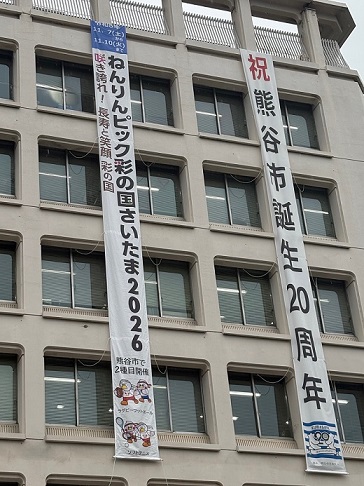 11.7(土)
から
11.10(火)
まで
咲き誇れ! 長寿と笑顔 彩の国
ねんりんピック彩の国さいたま2026
熊谷市で
2種目開催
ラグビーフットボール
ソフトテニス
祝 熊谷市誕生20周年